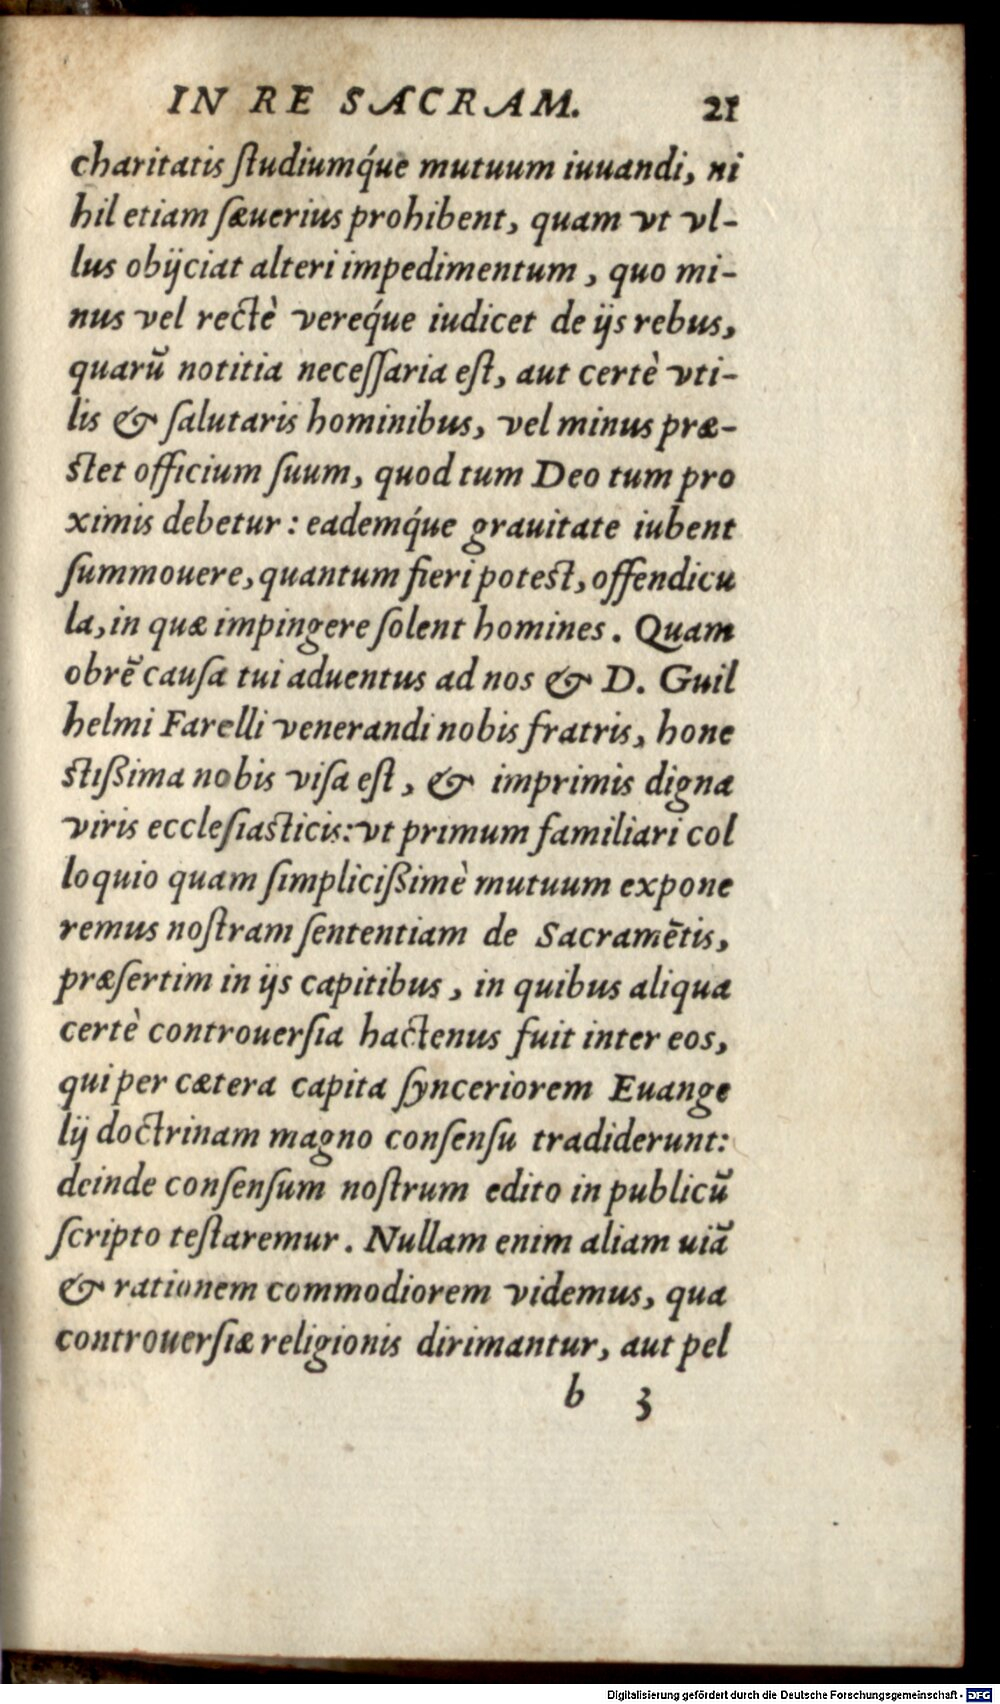 IN RE SACRAM. 21
charitatis ſtudiumq́ue mutuum iuuandi, ni
hil etiam ſæuerius prohibent, quam vt vl-
lus obijciat alteri impedimentum, quo mi-
nus vel rectè vereq́ue iudicet de ijs rebus,
quarū notitia neceſſaria eſt, aut certè vti-
lis & ſalutaris hominibus, vel minus præ-
ſtet officium ſuum, quod tum Deo tum pro
ximis debetur: eademq́ue grauitate iubent
ſummouere, quantum fieri potest, offendicu
la, in quæ impingere ſolent homines. Quam
obrē cauſa tui aduentus ad nos & D. Guil
helmi Farelli venerandi nobis fratris, hone
ſtißima nobis viſa eſt, & imprimis digna
viris eccleſiaſticis: vt primum familiari col
loquio quam ſimplicißimè mutuum expone
remus noſtram ſententiam de Sacramētis,
præſertim in ijs capitibus, in quibus aliqua
certè controuerſia hactenus fuit inter eos,
qui per cætera capita ſynceriorem Euange
lij doctrinam magno conſenſu tradiderunt:
deinde conſenſum noſtrum edito in publicū
ſcripto teſtaremur. Nullam enim aliam uiā
& rationem commodiorem videmus, qua
controuerſiæ religionis dirimantur, aut pel
b 3
Digitalisierung gefördert durch die Deutsche Forschungsgemeinschaft - DFG